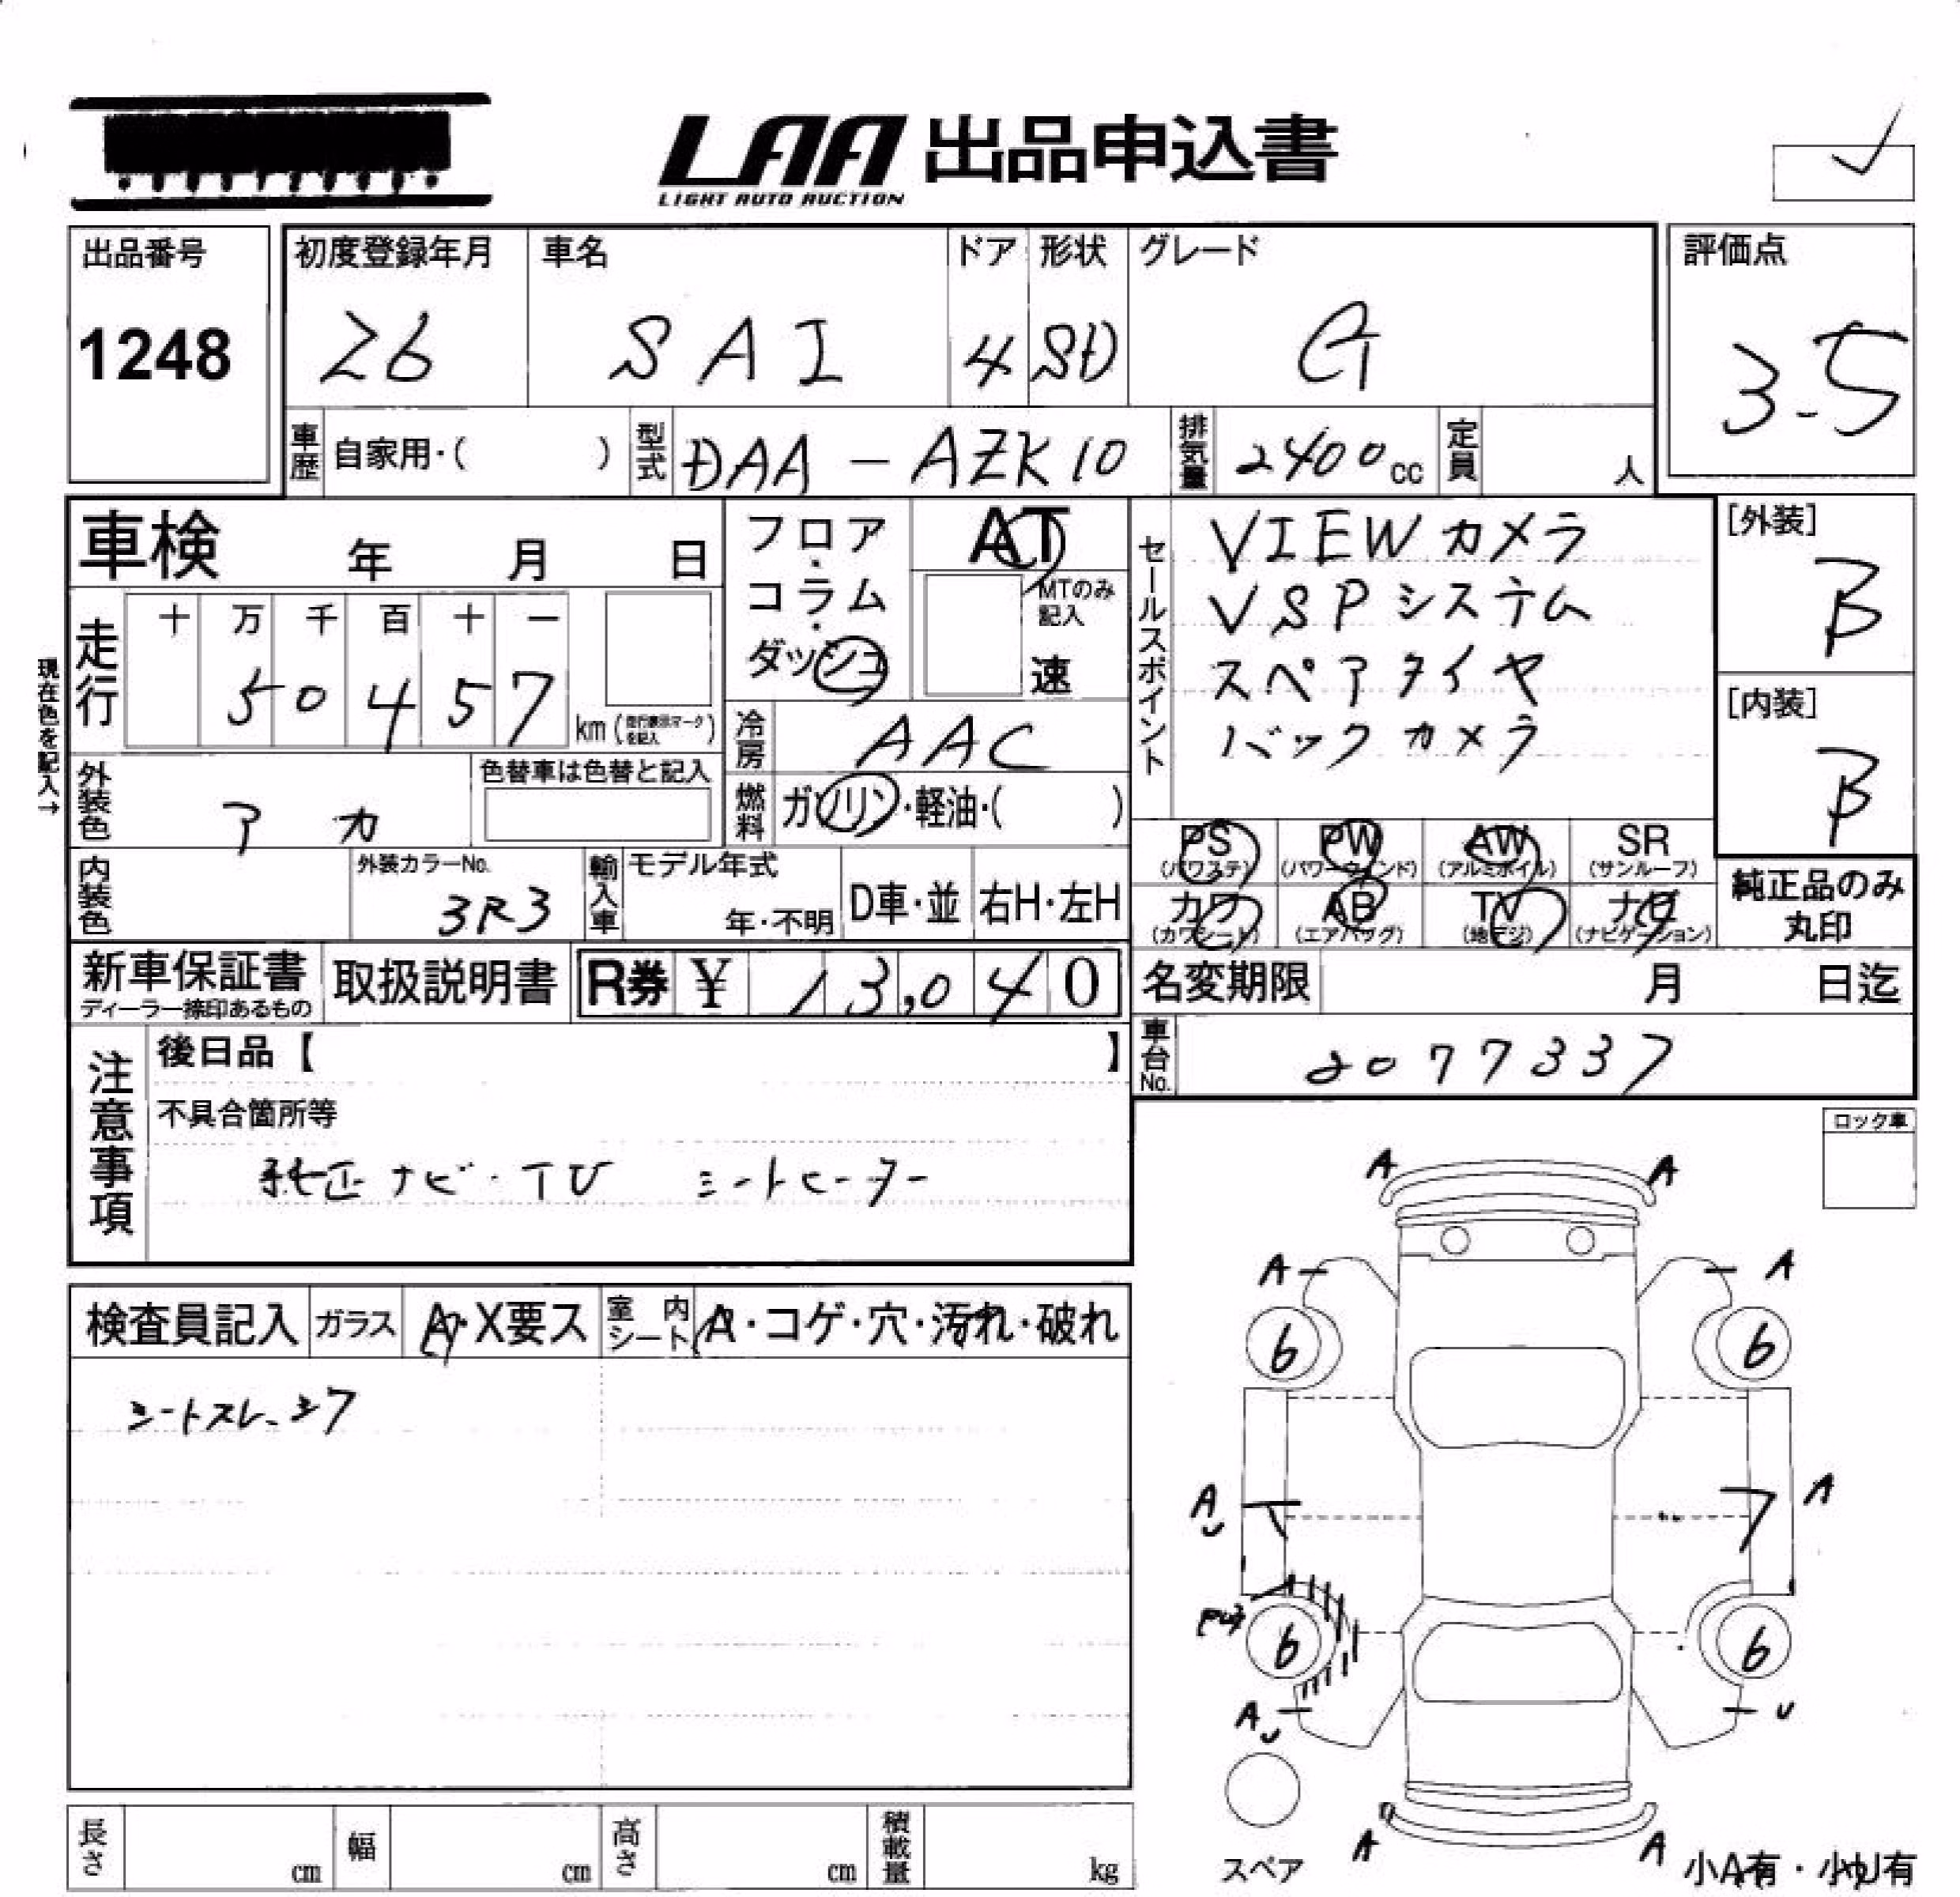 LAA 出品申込書
LIGHT AUTO AUCTION
出品番号
1248
初度登録年月
26
車名
SAI
ドア
4
形状
SD
グレード
G
評価点
3.5
車歴 自家用・( )
型式 DAA-AZK10
排気量 2400cc
定員 人
車検 年 月 日
フロア・コラム・ダッシュ
AT
MTのみ記入
速
セールスポイント
VIEWカメラ
VSPシステム
スペアタイヤ
バックカメラ
[外装]
B
[内装]
B
現在色を記入→
走行
十 万 千 百 十 一
5 0 4 5 7
km (走行表示マークを記入)
冷房 AAC
外装色 アカ
色替車は色替と記入
燃料 ガソリン・軽油・( )
PS (パワステ) PW (パワーウィンド) AW (アルミホイル) SR (サンルーフ)
カワ (カワシート) AB (エアバッグ) TV (地デジ) ナビ (ナビゲーション)
純正品のみ丸印
内装色
外装カラーNo.
3R3
輸入車
モデル年式
年・不明
D車・並
右H・左H
新車保証書
ディーラー捺印あるもの
取扱説明書
R券 ¥ 13,040
名変期限 月 日迄
車台No. 2077337
注意事項
後日品【 】
不具合箇所等
純正ナビ・TV シートヒーター
ロック車
検査員記入
ガラス
A・X要ス
室内シート
A・コゲ・穴・汚れ・破れ
シートスレ、シワ
A A
A A
6 6
A A
6 6
A U
A A
スペア
小A有・小U有
長さ cm
幅 cm
高さ cm
積載量 kg